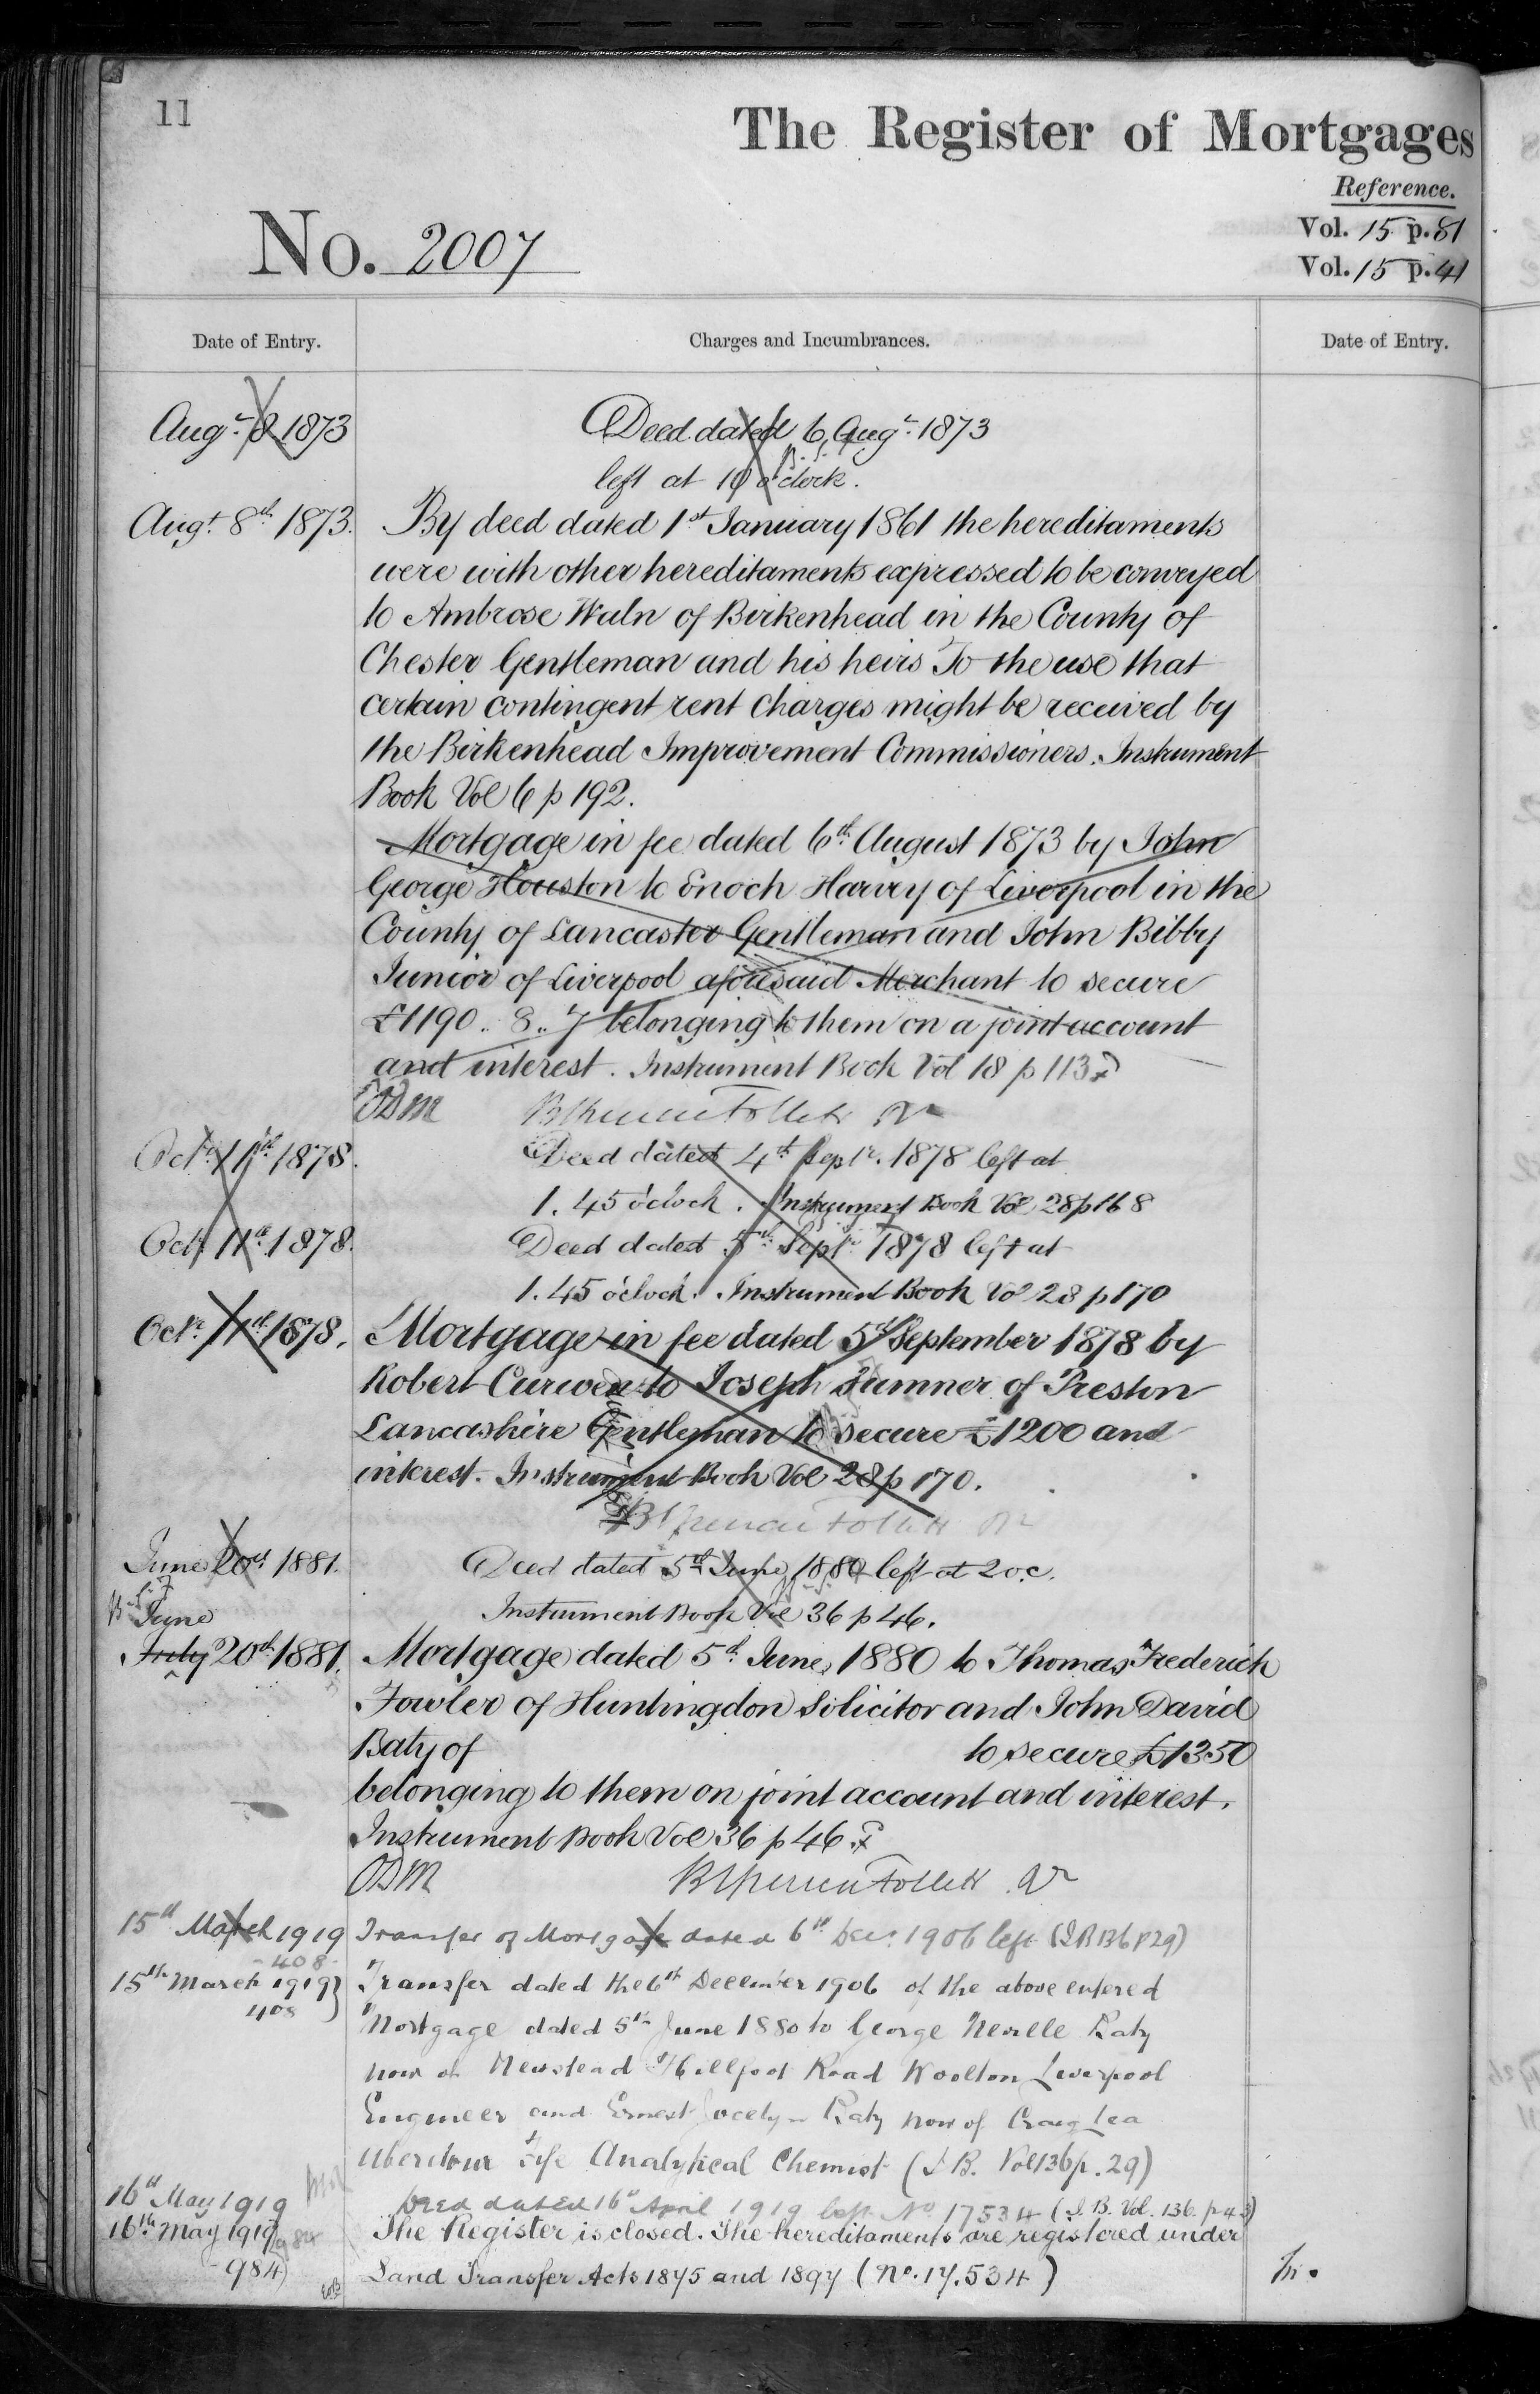 11
The Register of Mortgages
Reference.
No. 2007
Vol. 15 p. 81
Vol. 15 p. 41
Date of Entry.
Charges and Incumbrances.
Date of Entry.
Augt 8 1873
Deed dated 6 Augt 1873
left at 10 o'clock.
Augt 8th 1873.
By deed dated 1st January 1861 the hereditaments
were with other hereditaments expressed to be conveyed
to Ambrose Waln of Birkenhead in the County of
Chester Gentleman and his heirs To the use that
certain contingent rent charges might be received by
the Birkenhead Improvement Commissioners. Instrument
Book Vol 6 p 192.
Mortgage in fee dated 6th August 1873 by John
George Houston to Enoch Harvey of Liverpool in the
County of Lancaster Gentleman and John Bibby
Junior of Liverpool aforesaid Merchant to secure
£1190 .. 8 .. 7 belonging to them on a joint account
and interest. Instrument Book Vol 18 p 113
ODM
Octr 11th 1878.
Deed dated 4th Septr. 1878 left at
1.45 o'clock. Instrument Book Vol 28 p 168
Octr 11th 1878.
Deed dated 5th Septr 1878 left at
1.45 o'clock. Instrument Book Vol 28 p 170
Octr 11th 1878.
Mortgage in fee dated 5th September 1878 by
Robert Curwen to Joseph Sumner of Preston
Lancashire Gentleman to secure £1200 and
interest. Instrument Book Vol 28 p 170.
June 20th 1881.
Deed dated 5th June 1880 left at 2 o.c.
Instrument Book Vol 36 p 46.
June
July 20th 1881.
Mortgage dated 5th June 1880 to Thomas Frederick
Fowler of Huntingdon Solicitor and John David
Baty of to secure £1350
belonging to them on joint account and interest.
Instrument Book Vol 36 p 46.
ODM
15th March 1919
Transfer of Mortgage dated 6th Decr. 1906 left (I B 136 p 29)
408
15th March 1919
408
Transfer dated the 6th December 1906 of the above entered
Mortgage dated 5th June 1880 to George Neville Baty
now of Newstead Hillfoot Road Woolton Liverpool
Engineer and Ernest Jocelyn Baty now of Craig Lea
Aberdour Fife Analytical Chemist (I B. Vol 136 p. 29)
16th May 1919
Deed dated 16th April 1919 left No 17534 (I. B. Vol. 136. p 43)
16th May 1919
984
The Register is closed. The hereditaments are registered under
Land Transfer Acts 1875 and 1897 (No. 17.534)